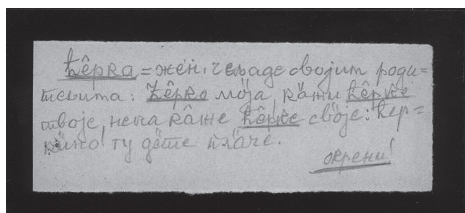 ћȇрка = жен. чељаде својим роди-
тељима: ћȇрко мо̏ја, ка̑жи ћȇрке
твоје, нека ка̑же ћȇрке сво̏је: ћер-
ту де̏те пла̏че.
окрени!